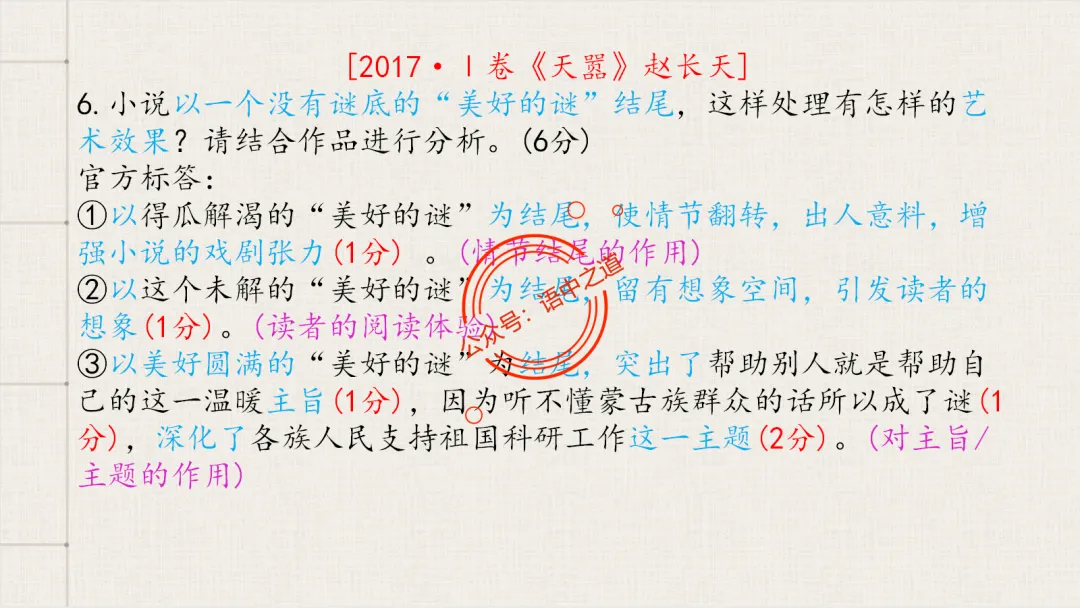 [2017·Ⅰ卷《天嚣》赵长天]
6.小说以一个没有谜底的“美好的谜”结尾，这样处理有怎样的艺
术效果？请结合作品进行分析。(6分)
官方标答：
①以得瓜解渴的“美好的谜”为结尾，使情节翻转，出人意料，增
强小说的戏剧张力(1分) 。(情节结尾的作用)
②以这个未解的“美好的谜”为结尾，留有想象空间，引发读者的
想象(1分)。(读者的阅读体验)
③以美好圆满的“美好的谜”为结尾，突出了帮助别人就是帮助自
己的这一温暖主旨(1分)，因为听不懂蒙古族群众的话所以成了谜(1
分)，深化了各族人民支持祖国科研工作这一主题(2分)。(对主旨/
主题的作用)
公众号：语中之道